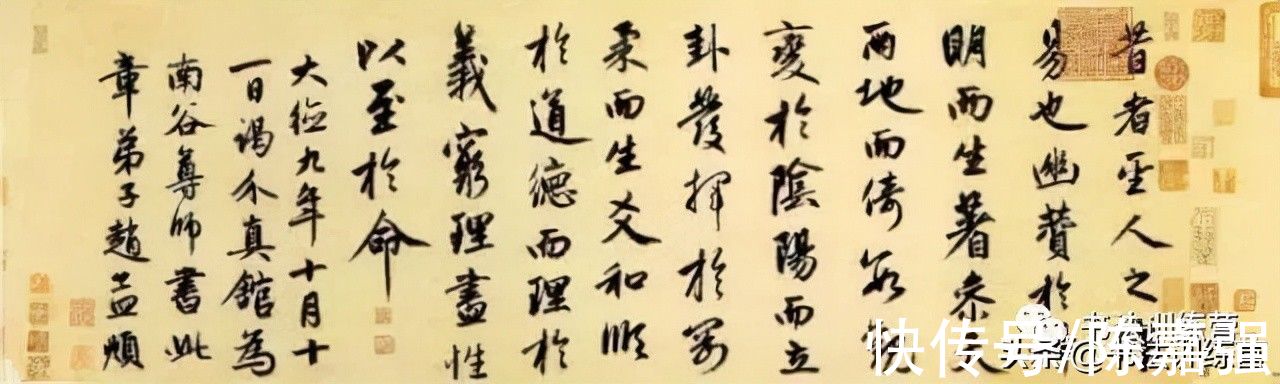 昔者聖人之
易也幽贊於
明而生蓍參天
兩地而倚數
變於陰陽而立
卦發揮於剛
柔而生爻和順
於道德而理於
義窮理盡性
以至於命
大德九年十月十
一日謁介真館為
南谷尊師書此
章弟子趙孟頫
快传号/陈嘉强